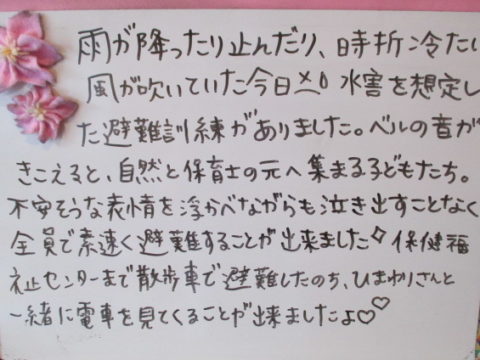 雨が降ったり止んだり、時折冷たい
風が吹いていた今日 水害を想定し
た避難訓練がありました。ベルの音が
きこえると、自然と保育士の元へ集まる子どもたち。
不安そうな表情を浮かべながらも泣き出すことなく
全員で素速く避難することが出来ました◇ 保健福
祉センターまで散歩車で避難したのち、ひまわりさんと
一緒に電車を見てくることが出来ましたよ♡♡